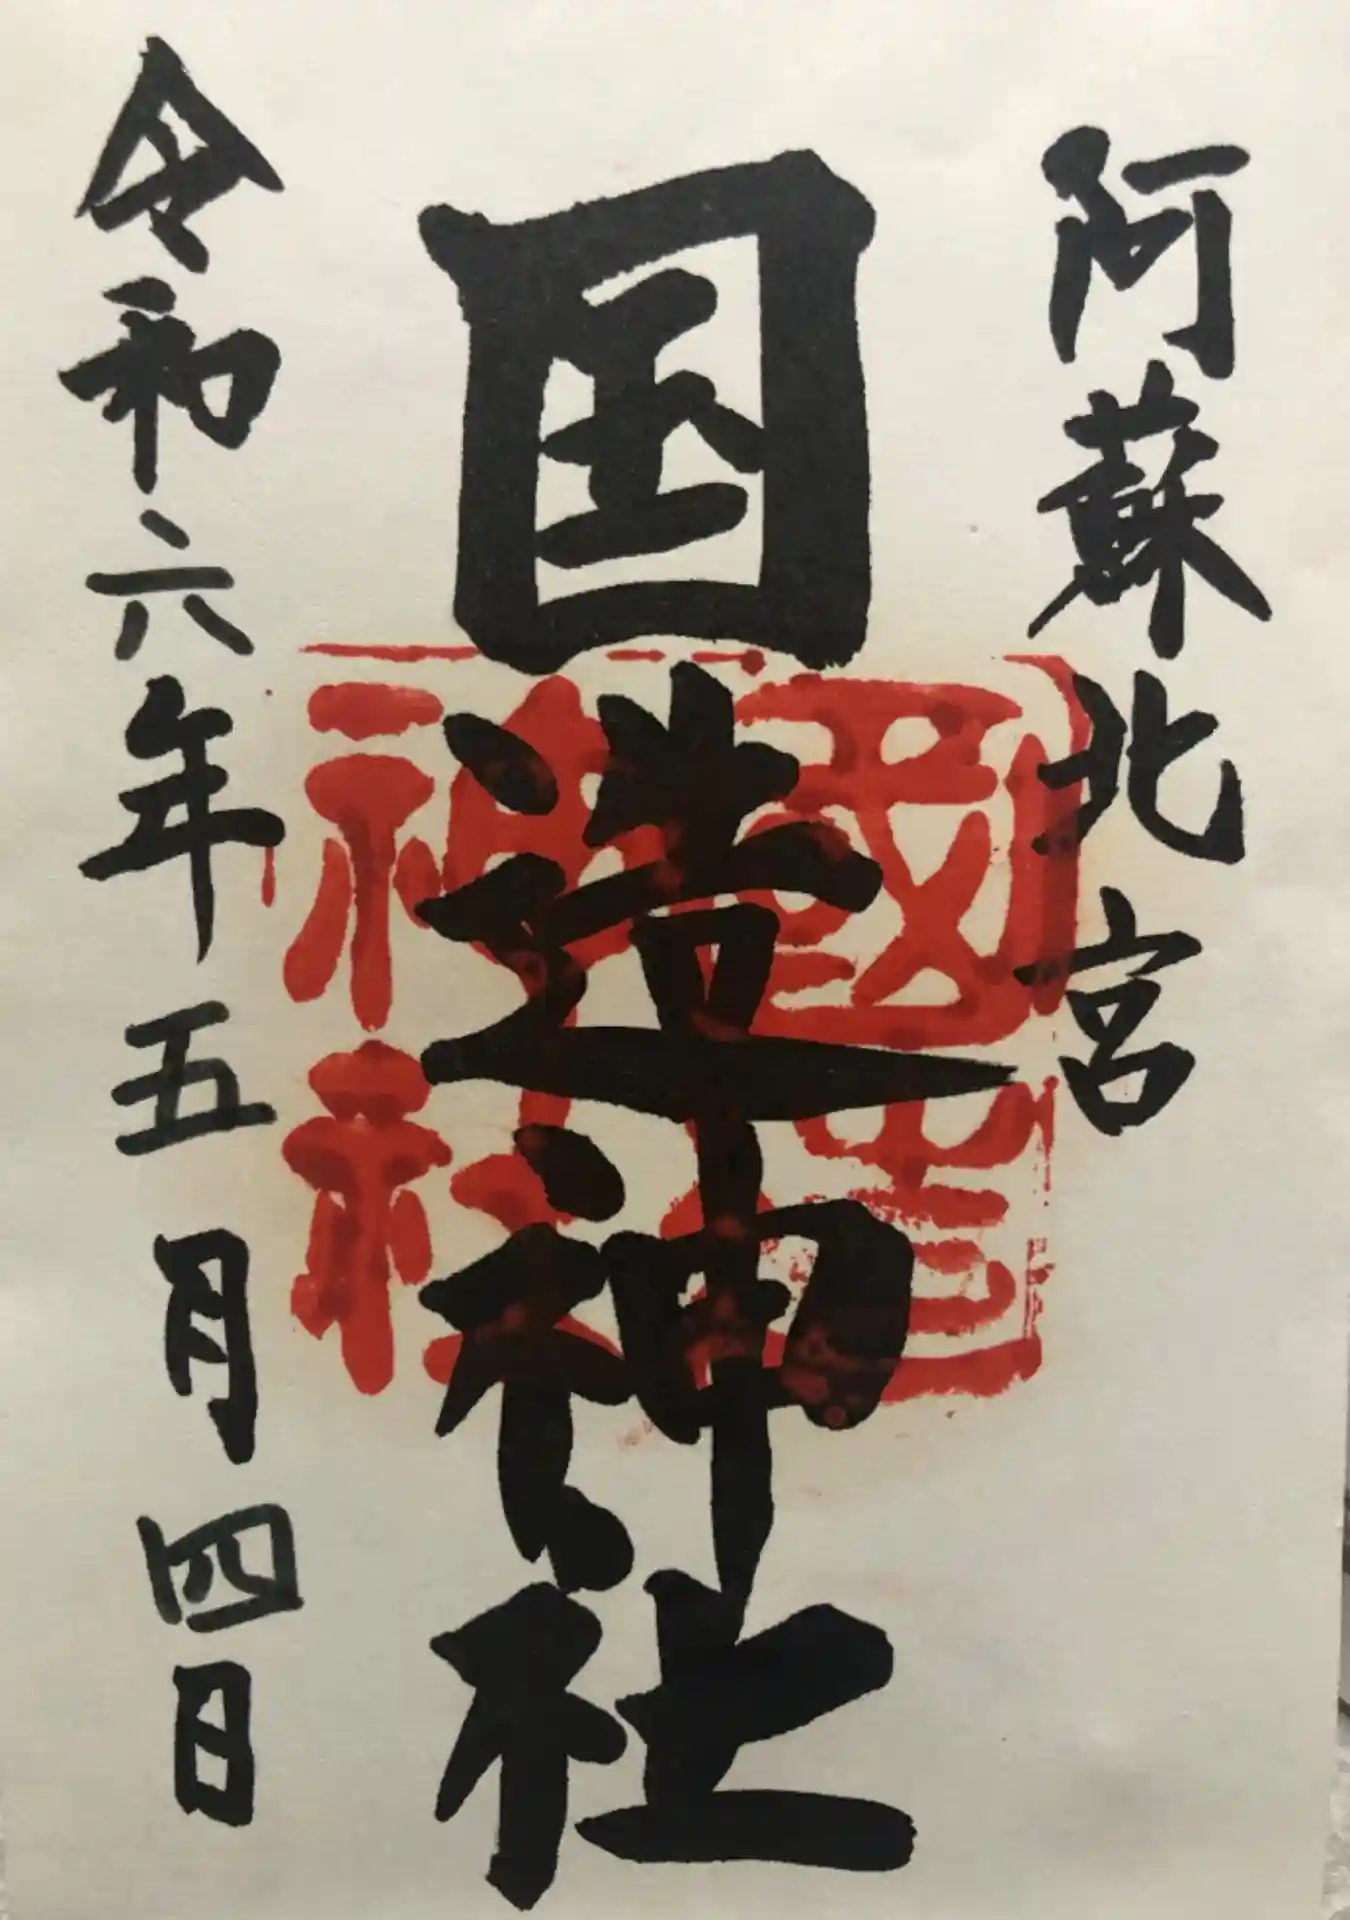 阿蘇北宮
国造神社
國造神社
令和六年五月四日